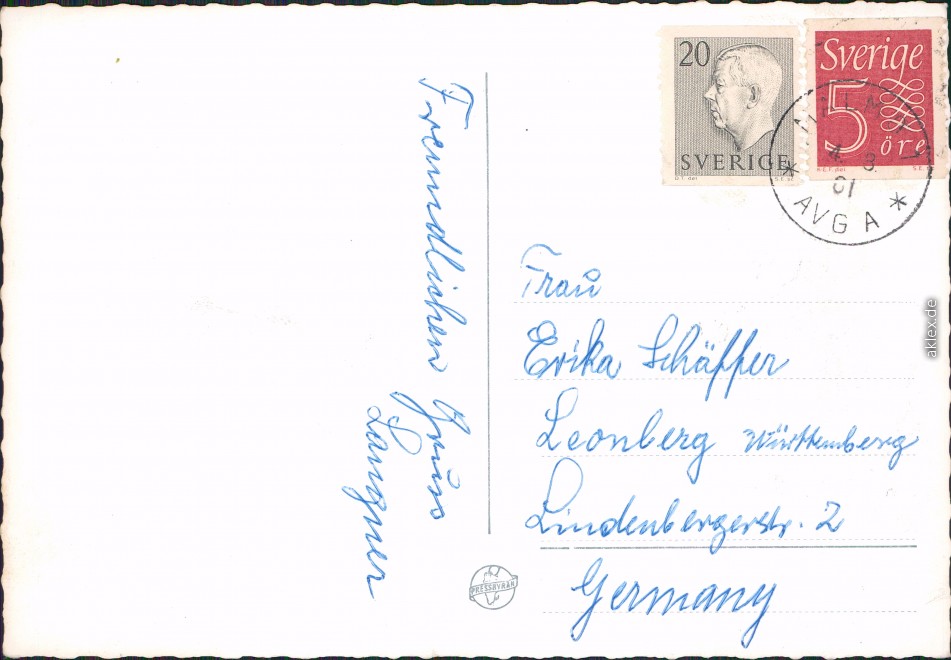 Freundlichen Gruss
Langner
20
SVERIGE
Sverige
5
öre
4 8
61
AVG A
Frau
Erika Schäffer
Leonberg Württemberg
Lindenbergerstr. 2
Germany
PRESSBYRÅN
aklex.de